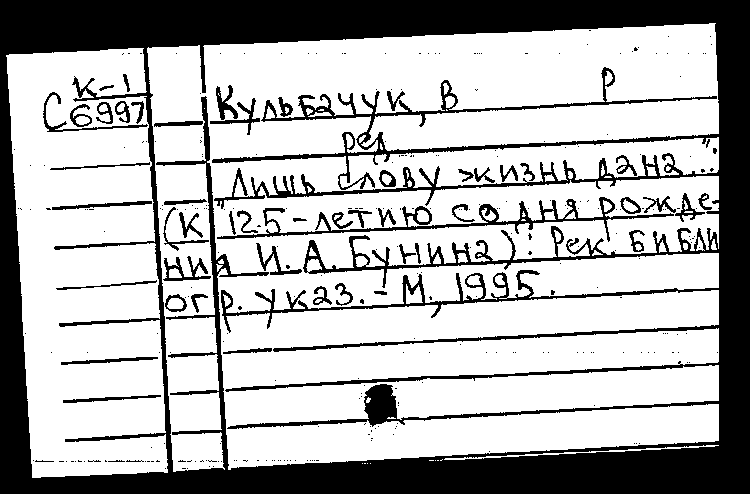 К-1
С6997
Кульбачук, В Р
ред
"Лишь слову жизнь дана...":
(К 125-летию со дня рожде-
ния И. А. Бунина): Рек. библи
огр. указ. - М., 1995.